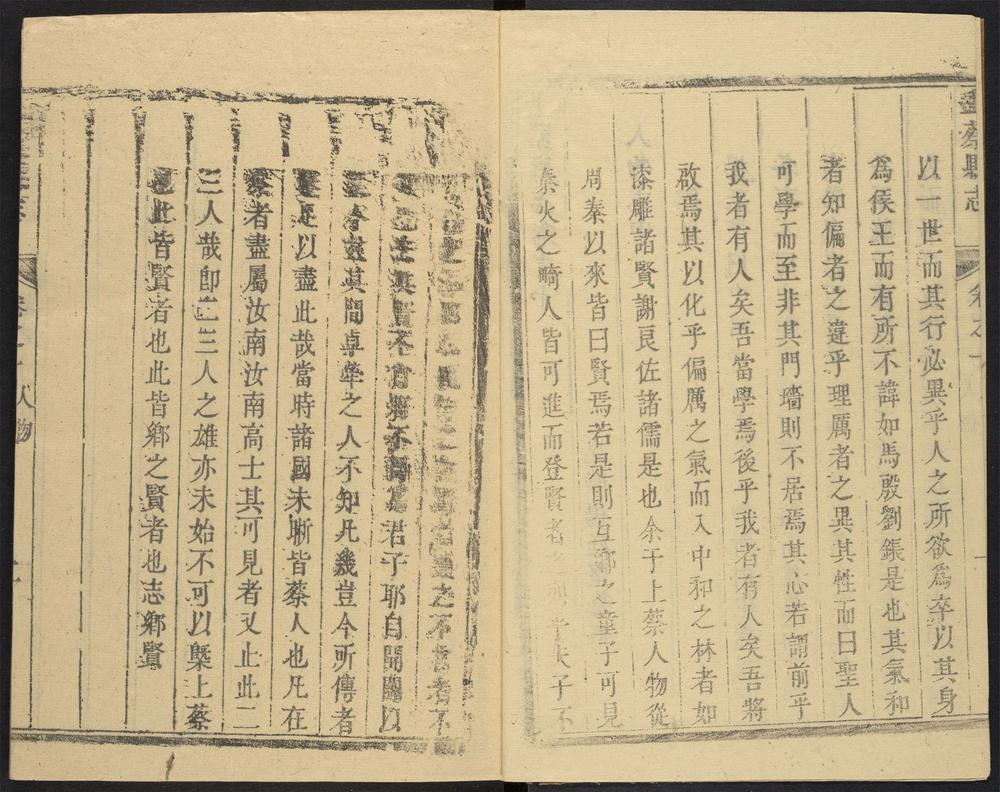 蔡縣志
卷之
以一世而其行必異乎人之所欲爲卒以其身
爲侯王而有所不諱如馬殷劉鋹是也其氣和
者知偏者之違乎理厲者之異其性而曰聖人
可學而至非其門墻則不居焉其心若謂前乎
我者有人矣吾當學焉後乎我者有人矣吾將
啟焉其以化乎偏厲之氣而入中和之林者如
漆雕諸賢謝良佐諸儒是也余于上蔡人物從
周秦以來皆曰賢焉若是則互鄉之童子可見
秦火之畸人皆可進而登賢者 夫子不
之不 者不
其 不 不 君子耶自開闢以
至今茲其間卓犖之人不知凡幾豈今所傳者
足以盡此哉當時諸國未晰皆蔡人也凡在
蔡者盡屬汝南汝南高士其可見者又止此二
三人哉卽二三人之雄亦未始不可以槩上蔡
也此皆賢者也此皆鄉之賢者也志鄉賢
人物